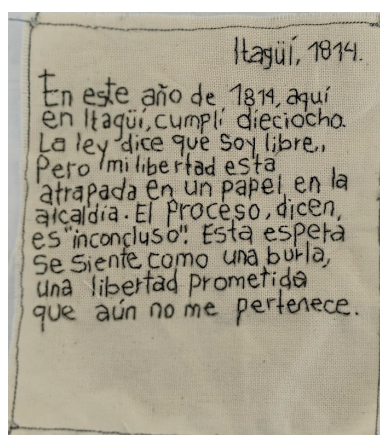 Itagüí, 1814.
En este año de 1814, aquí
en Itagüí, cumplí dieciocho.
La ley dice que soy libre,
Pero mi libertad está
atrapada en un papel en la
alcaldía. El Proceso, dicen,
es "inconcluso". Esta espera
se siente como una burla,
una libertad prometida
que aún no me pertenece.